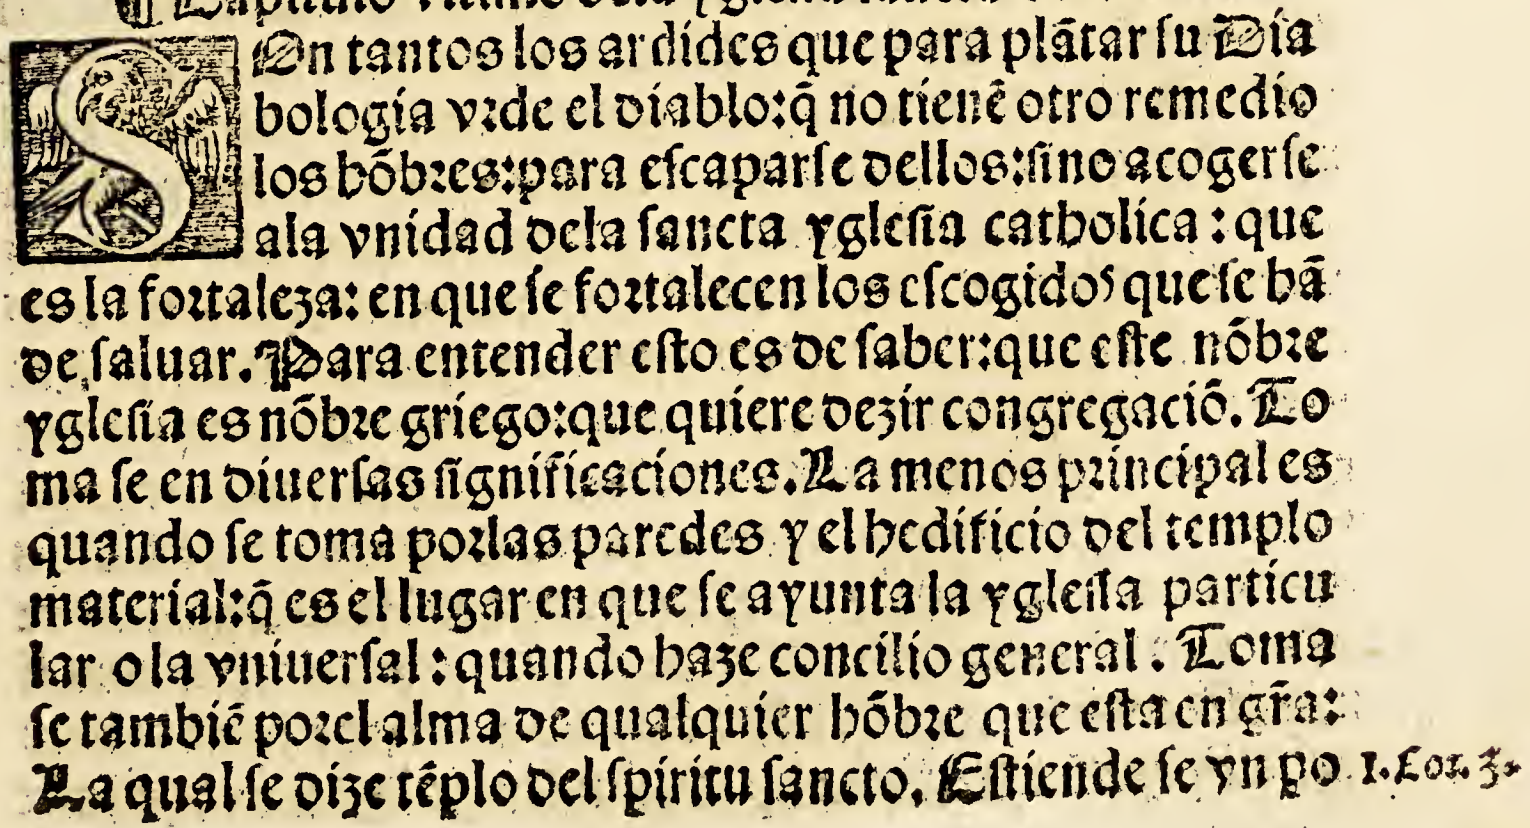 ¶ Capitulo
SOn tantos los ardides que para plãtar su Dia
bologia vrde el diablo:q̃ no tienẽ otro remedio
los hõbres:para escaparse dellos:sino acogerse
ala vnidad dela sancta yglesia catholica : que
es la fortaleza: en que se fortalecen los escogidos que se hã
de saluar. Para entender esto es de saber:que este nõbre
yglesia es nõbre griego:que quiere dezir congregaciõ. To
ma se en diuersas significaciones. La menos principal es
quando se toma por las paredes y el hedificio del templo
material:q̃ es el lugar en que se ayunta la yglesia particu
lar o la vniuersal : quando haze concilio general. Toma
se tambiẽ por el alma de qualquier hõbre que esta en gr̃a:
La qual se dize tẽplo del spiritu sancto. Estiende se vn po
1. Cor. 3.